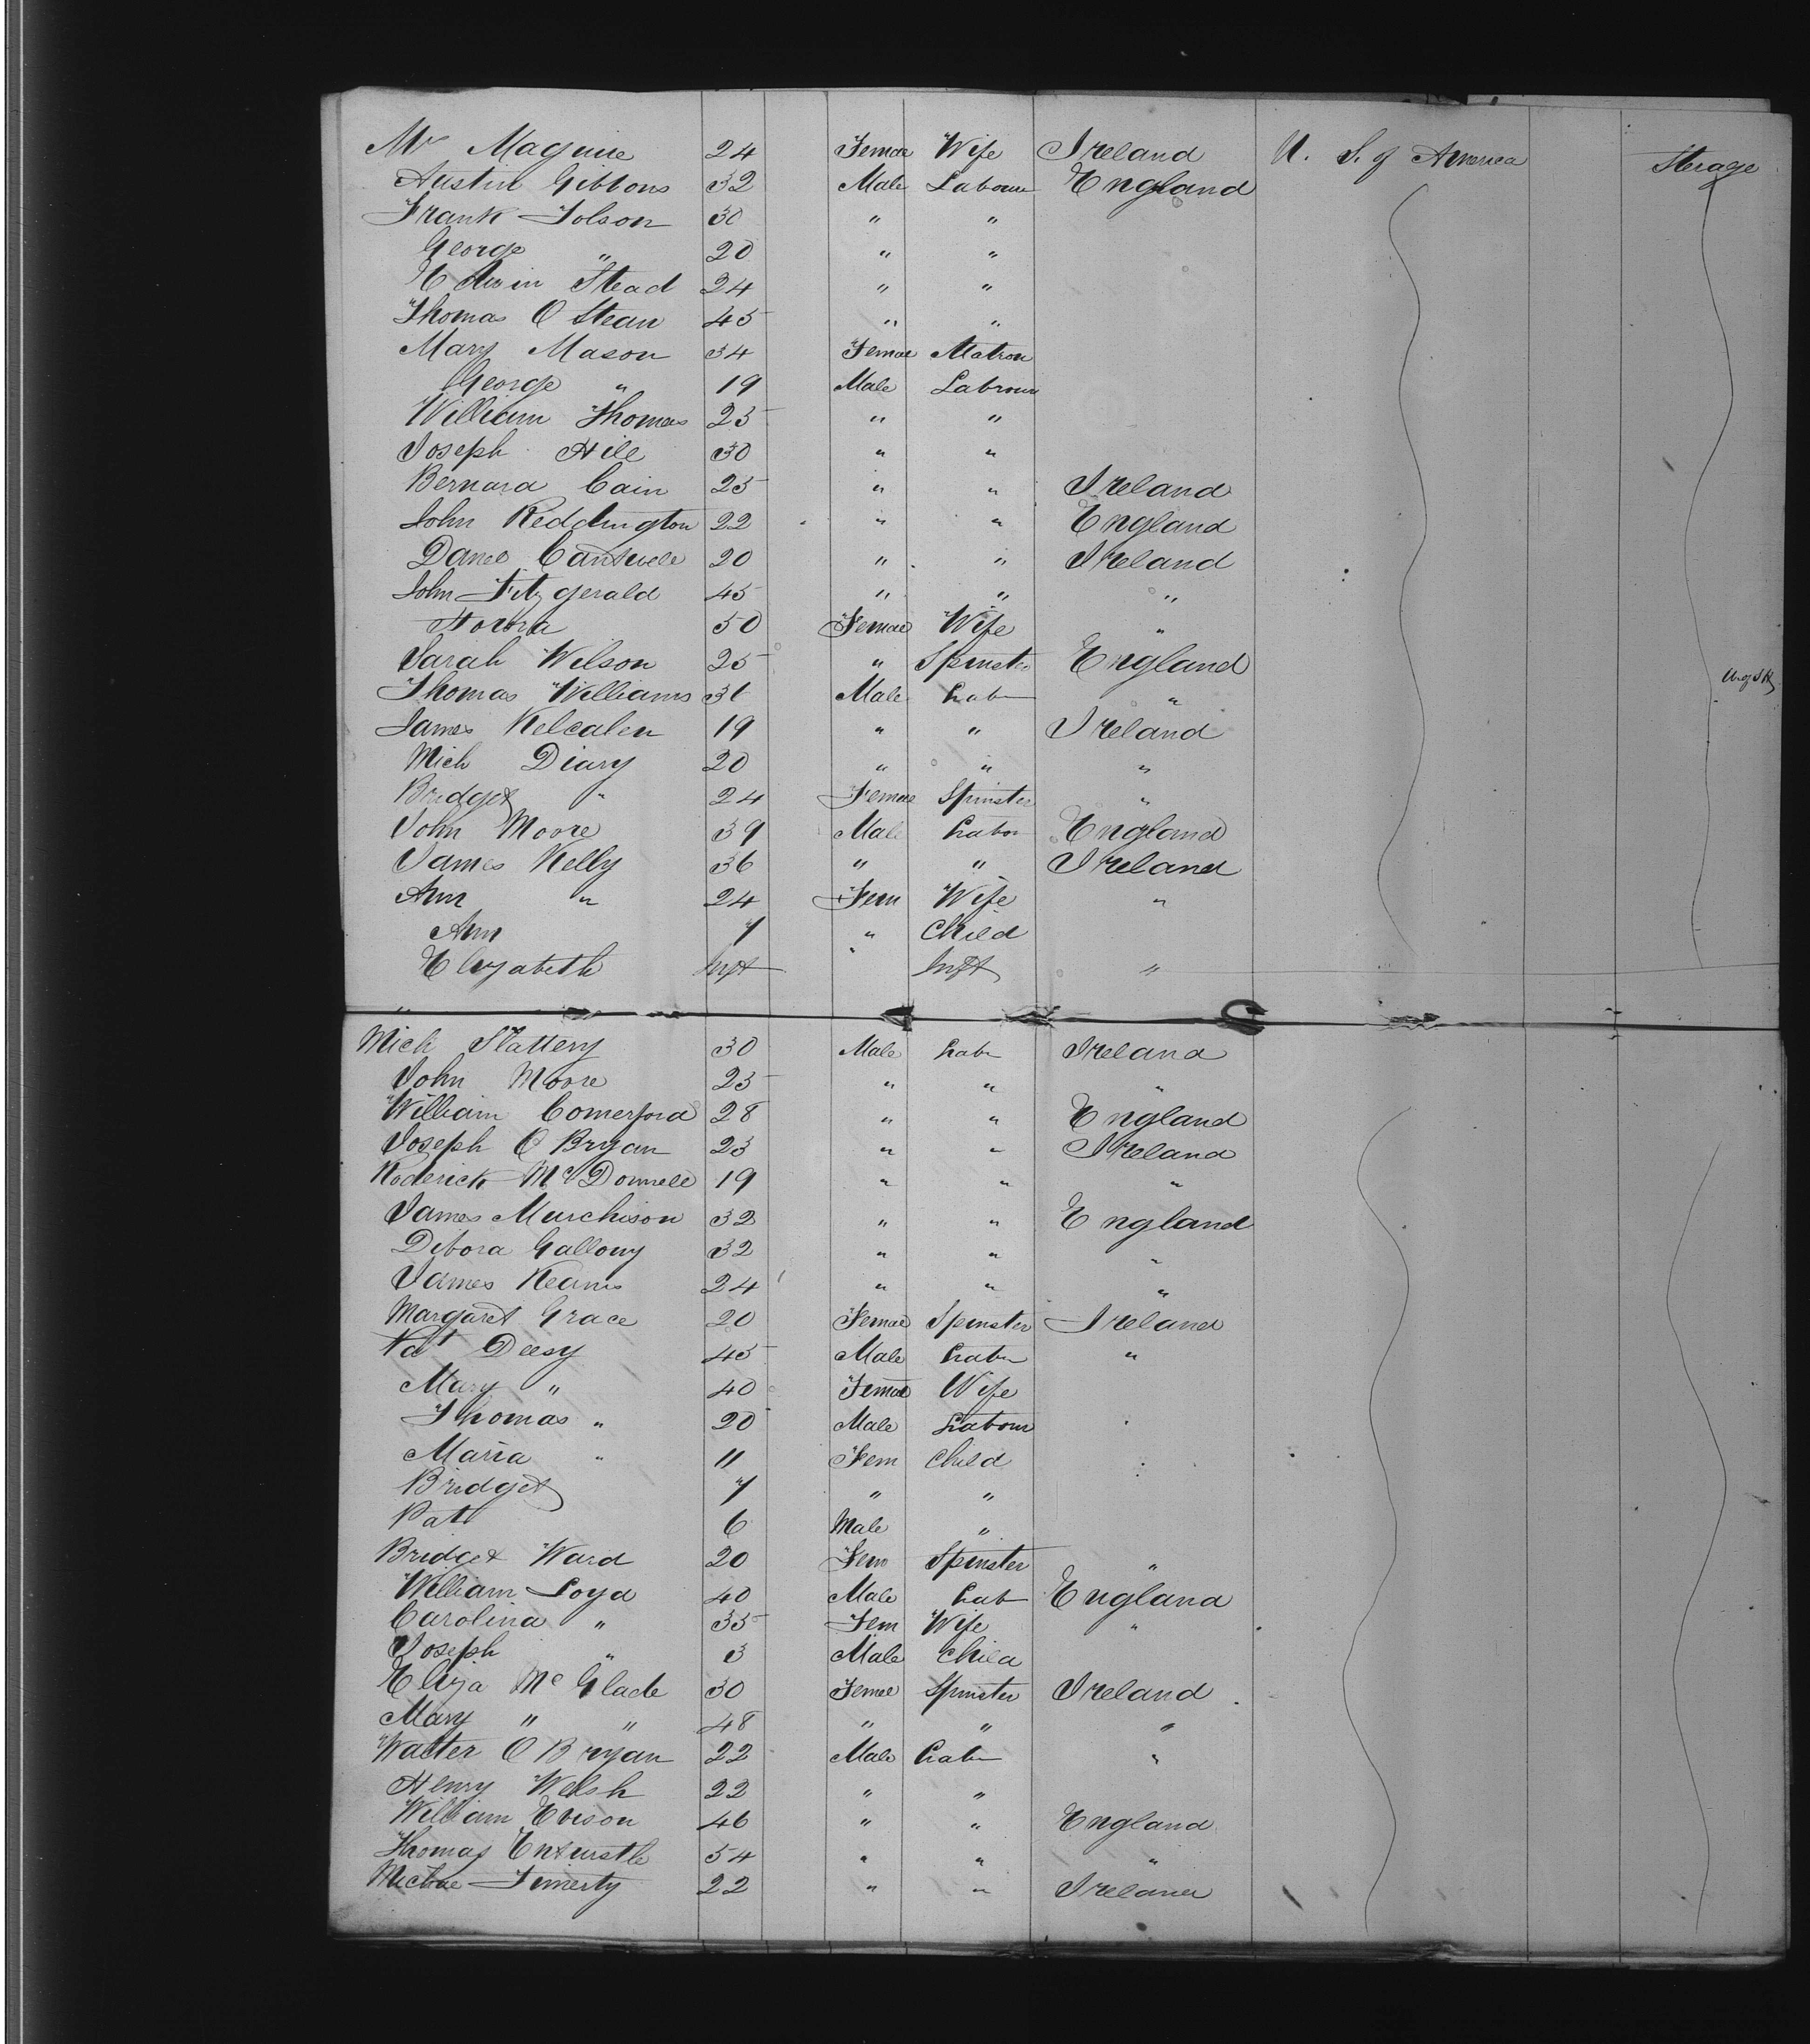 Mrs Maguire 24 Female Wife Ireland U. S. of America Sterage
Austin Gibbons 32 Male Labourer England
Frank Tolson 30 " "
George " 20 " "
Edwin Stead 24 " "
Thomas O Stean 45 " "
Mary Mason 34 Female Matron
George " 19 Male Labourer
William Thomas 25 " "
Joseph Hill 30 " "
Bernard Cain 25 " " Ireland
John Reddington 22 " " England
Daniel Cantwell 20 " " Ireland
John Fitzgerald 45 " " "
Honora 50 Female Wife "
Sarah Wilson 25 " Spinster England
Thomas Williams 31 Male Labr "
James Kelcalen 19 " " Ireland
Mich Diary 20 " " "
Bridget " 24 Female Spinster "
John Moore 39 Male Labor England
James Kelly 36 " " Ireland
Ann " 24 Fem Wife "
Ann 7 " Child
Elizabeth Inft " Inft "
Mich Slattery 30 Male Labr Ireland
John Moore 25 " " "
William Comerford 28 " " England
Joseph O Bryan 23 " " Ireland
Roderick McDonnell 19 " " "
James Murchison 32 " " England
Debora Gallony 32 " " "
James Keanis 24 " " "
Margaret Grace 20 Female Spinster Ireland
Pat Deesy 45 Male Labr "
Mary " 40 Female Wife
Thomas " 20 Male Labour
Maria " 11 Fem Child
Bridget 7 " "
Pat 6 Male "
Bridget Ward 20 Fem Spinster "
William Loyd 40 Male Lab England
Carolina " 35 Fem Wife "
Joseph " 3 Male Child
Eliza McGlade 30 Female Spinster Ireland
Mary " " 48 " " "
Walter O Bryan 22 Male Labr "
Henry Welsh 22 " "
William Evison 46 " " England
Thomas Entwistle 54 " " "
Michae Finnerty 22 " " Ireland